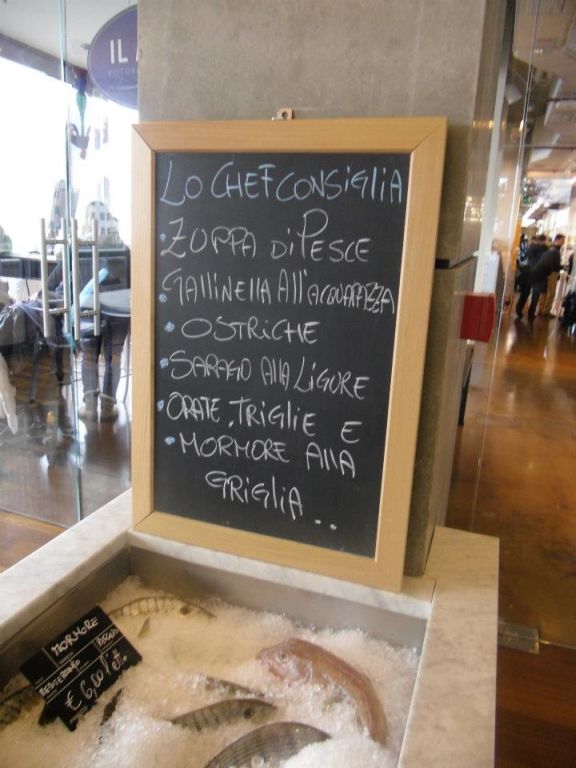 IL
LO CHEF CONSIGLIA
• ZUPPA DI PESCE
• GALLINELLA All'ACQUAPAZZA
• OSTRICHE
• SARAGO AllA LIGURE
• ORATE, TRIGLIE E
• MORMORE AllA
GRIGLIA...
MORMORE
PESCATO
MEDITERRANEO
€ 6,00 l'etto